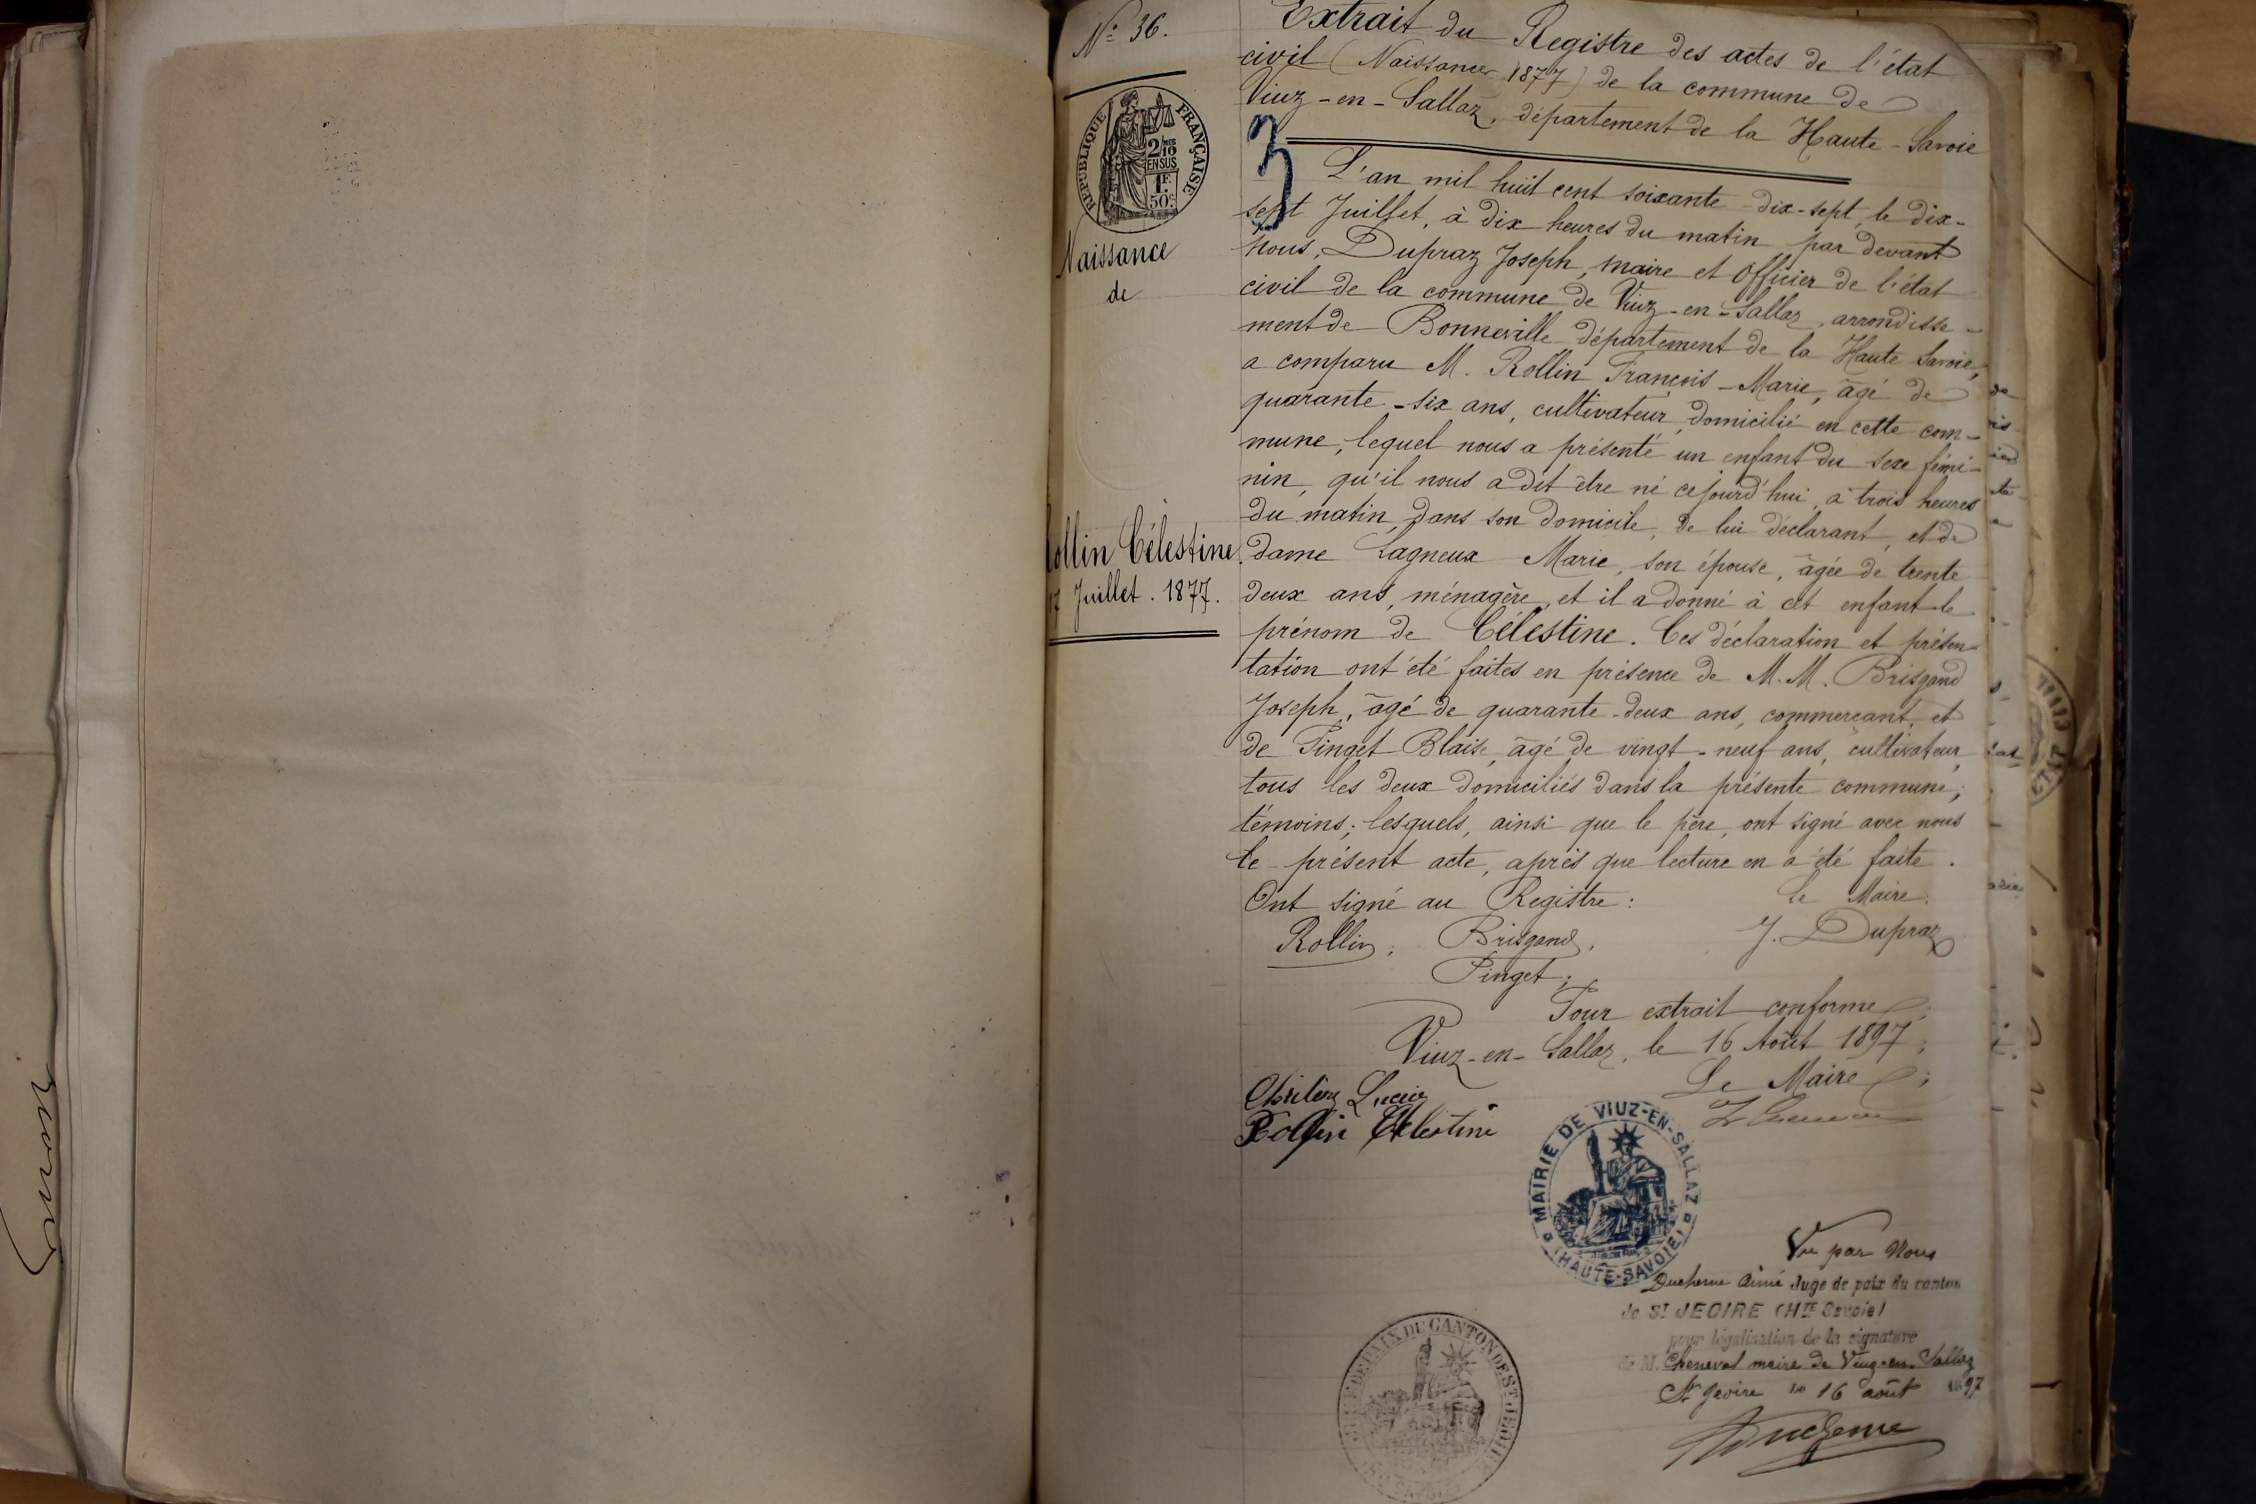 Nº 36.
RÉPUBLIQUE FRANÇAISE
2/10
EN SUS
1F.
50c
Naissance
de
Rollin Célestine.
17 Juillet. 1877.
Extrait du Registre des actes de l'état
civil (Naissances 1877) de la commune de
Viuz-en-Sallaz, département de la Haute-Savoie
3
L'an mil huit cent soixante-dix-sept, le dix-
sept Juillet, à dix heures du matin par devant
Nous, Dupraz Joseph, maire et Officier de l'état
civil de la commune de Viuz-en-Sallaz, arrondisse-
ment de Bonneville département de la Haute Savoie,
a comparu M. Rollin François-Marie, âgé de
quarante-six ans, cultivateur, domicilié en cette com-
mune, lequel nous a présenté un enfant du sexe fémi-
nin, qu'il nous a dit être né cejourd'hui, à trois heures
du matin, dans son domicile, de lui déclarant, et de
dame Lagneux Marie, son épouse, âgée de trente
deux ans, ménagère, et il a donné à cet enfant le
prénom de Célestine. Ces déclaration et présen-
tation ont été faites en présence de M.M. Brisgand
Joseph, âgé de quarante-deux ans, commerçant, et
de Pinget Blaise, âgé de vingt-neuf ans, cultivateur,
tous les deux domiciliés dans la présente commune,
témoins; lesquels, ainsi que le père, ont signé avec nous
le présent acte, après que lecture en a été faite.
Ont signé au Registre: Le Maire.
Rollin; Brisgand, J. Dupraz
Pinget;
Pour extrait conforme;
Viuz-en-Sallaz, le 16 Août 1897;
Le Maire;
Lucie
Rollin Célestine
MAIRIE DE VIUZ-EN-SALLAZ
(HAUTE-SAVOIE)
Vu par Nous
Duchesne Aimé Juge de paix du canton
de St JEOIRE (Hte Savoie)
pour légalisation de la signature
de M. Cheneval maire de Viuz-en-Sallaz
St Jeoire le 16 août 1897
Duchesne
JUSTICE DE PAIX DU CANTON DE ST JEOIRE